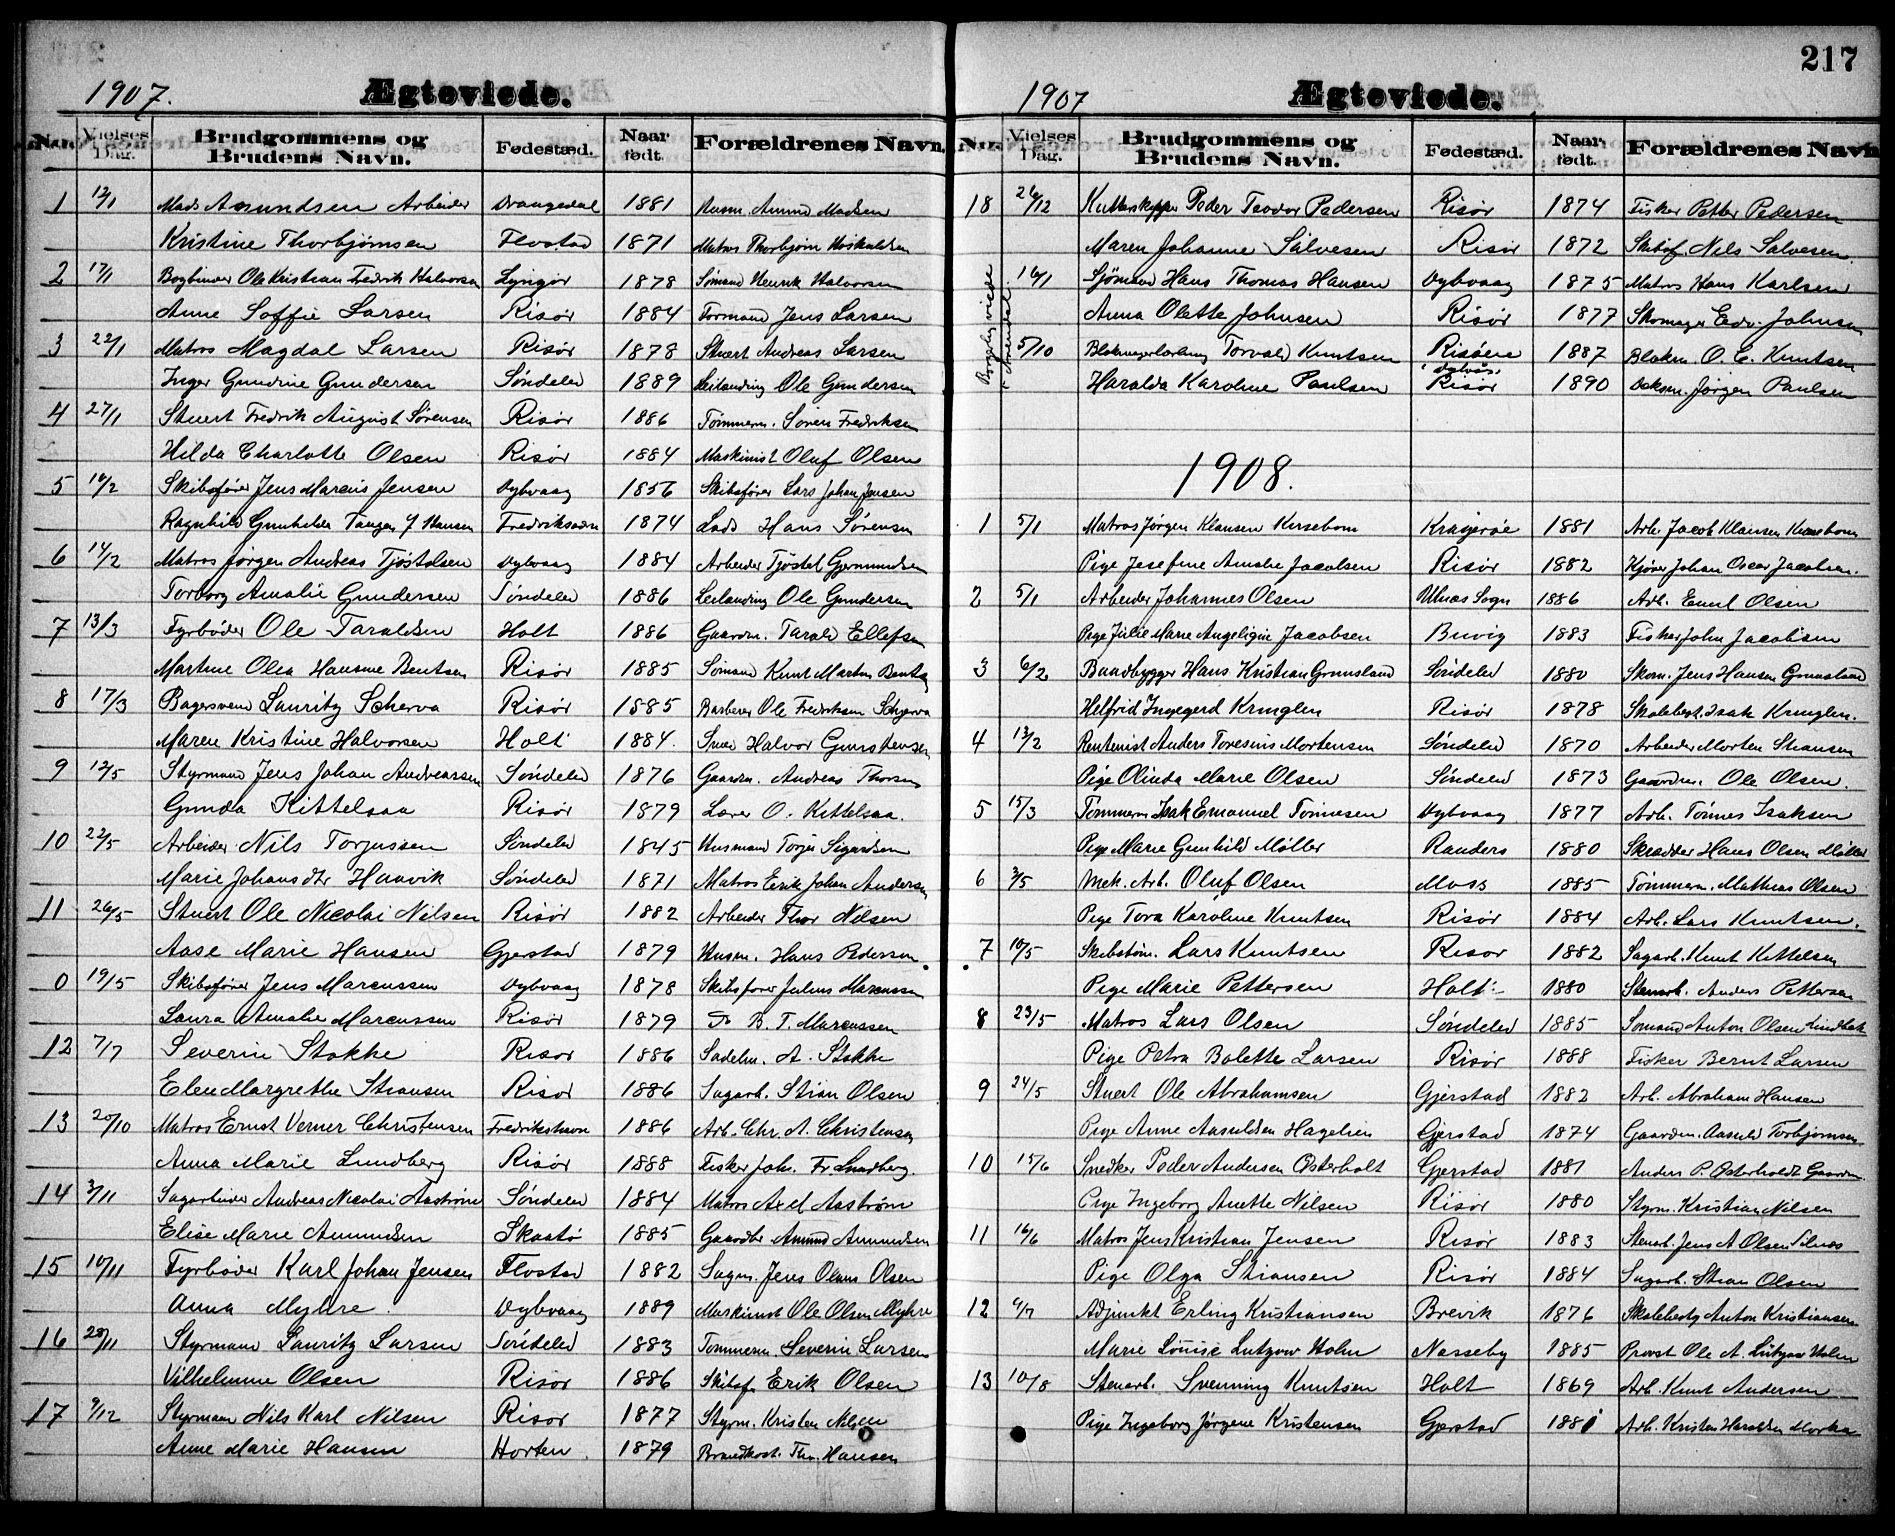 1907.
Ægteviede.
Num. Vielses Dag. Brudgommens og Brudens Navn. Fødestæd. Naar født. Forældrenes Navn.
1 12/1 Mads Amundsen Arbeider Drangedal 1881 Husm. Amund Madsen
Kristine Thorbjørnsen Flostad 1871 Matros Thorbjørn
2 17/1 Bogbinder Ole Kristian Fredrik Halvorsen Lyngør 1878 Sømand Henrik Halvorsen
Anne Soffie Larsen Risør 1884 Formand Jens Larsen
3 22/1 Matros Magdal Larsen Risør 1878 Stuert Andreas Larsen
Inger Gundine Gundersen Søndeled 1889 Leilending Ole Gundersen
4 27/1 Stuert Fredrik August Sørensen Risør 1886 Tømmerm. Søren Fredriksen
Hilda Charlotte Olsen Risør 1884 Maskinist Oluf Olsen
5 10/2 Skibsfører Jens Marcus Jensen Dybvaag 1856 Skibsfører Lars Johan Jensen
Ragnhild Gunhilda Tangen f Hansen Fredrikshavn 1874 Lods Hans Sørensen
6 14/2 Matros Jørgen Andreas Tjøstolsen Dybvaag 1884 Arbeider Tjøstel Gjermundsen
Torborg Amalie Gundersen Søndeled 1886 Leilending Ole Gundersen
7 13/3 Fyrbøder Ole Taraldsen Holt 1886 Gaardm. Tarald Ellefsen
Martine Olea Hansine Bentsen Risør 1885 Sømand Knut Martin Bentsen
8 17/3 Bagersvend Lauritz Scherva Risør 1885 Barberer Ole Fredriksen Scherva
Maren Kristine Halvorsen Holt 1884. Smed Halvor Gunstensen
9 12/5 Styrmand Jens Johan Andreassen Søndeled 1876 Gaardm. Andreas Thorsen
Gunda Kittelsaa Risør 1879 Lærer O. Kittelsaa.
10 22/5 Arbeider Nils Torjussen Søndeled 1845 Husmand Torjus Sigurdsen
Marie Johansdtr Haavik Søndeled 1871 Matros Erik Johan Andersen
11 26/5 Stuert Ole Nicolai Nilsen Risør 1882 Arbeider Thor Nilsen
Aase Marie Hansen Gjerstad 1879 Husm. Hans Pedersen
0 19/5 Skibsfører Jens Marcussen Dybvaag 1878 Skibsfører Julius Marcussen
Laura Amalie Marcussen Risør 1879 Do B. T. Marcussen
12 7/7 Severin Stokke Risør 1886 Sadelm. A. Stokke
Elen Margrethe Stiansen Risør 1886 Sagarb. Stian Olsen
13 20/10 Matros Ernst Verner Christensen Fredrikshavn 1886 Arb. Chr. A. Christensen
Anna Marie Lundberg Risør 1888 Fisker Joh. Fr. Lundberg.
14 3/11 Sagarbeider Andreas Nicolai Aastrøm Søndeled 1884 Matros Axel Aastrøm
Elise Marie Amundsen Skaatø 1885 Amund Amundsen
15 10/11 Fyrbøder Karl Johan Jensen Flostad 1882 Sagm. Jens Olaus Olsen
Anna Myhre Dybvaag 1889 Maskinist Ole Olsen Myhre
16 28/11 Styrmand Lauritz Larsen Søndeled 1883 Tømmerm Severin Larsen
Vilhelmine Olsen Risør 1886 Skibsf. Erik Olsen
17 9/12 Styrmann Nils Karl Nilsen Risør 1877 Styrm. Kristen Nilsen
Anne Marie Hansen Horten. 1879 Th. Hansen
217
1907
Ægteviede.
Num. Vielses Dag. Brudgommens og Brudens Navn. Fødestæd. Naar født. Forældrenes Navn
18 26/12 Kutterskipper Peder Teodor Pedersen Risør 1874 Fisker Petter Pedersen
Maren Johanne Salvesen Risør 1872 Skibsf. Nils Salvesen.
Borgerlig viede i Arendal.
16/1 Sjømand Hans Thomas Hansen Dybvaag 1875 Matros Hans Karlsen
Anna Olette Johnsen Risør 1877 Skomager Edv. Johnsen
5/10 Torvald Knutsen Risøen i Dybvåg 1887 O. C. Knutsen
Haralda Karoline Paulsen Risør 1890 Jørgen Paulsen
1908.
1 5/1 Matros Jørgen Klausen Kirsebom Kragerøe 1881 Arb. Jacob Klausen Kirsebom
Pige Josefine Amalie Jacobsen Risør 1882 Kjører Johan Oscar Jacobsen.
2 5/1 Arbeider Johannes Olsen Ulnæs Sogn 1886 Arb. Emil Olsen
Pige Julie Marie Angeligue Jacobsen Buvig 1883 Fisker John Jacobsen
3 6/2 Baadbygger Hans Kristian Grumsland Søndeled 1880 Skom. Jens Hansen Grumsland
Helfrid Ingegerd Kringlen Risør 1878 Skolebest. Isak Kringlen.
4 13/2 Rentenist Anders Toresius Mortensen Søndeled 1870 Arbeider Morten Stiansen
Pige Olinda Marie Olsen Søndeled 1873 Gaardm. Ole Olsen.
5 15/3 Tømmerm Isak Emanuel Tønnesen Dybvaag 1877 Arb. Tønnes Isaksen
Pige Marie Gunhild Møller Randers 1880 Skrædder Hans Olsen Møller
6 3/5 Mek. Arb. Oluf Olsen Moss 1885 Tømmerm. Mathias Olsen
Pige Tora Karoline Knutsen Risør 1884 Arb. Lars Knutsen.
7 10/5 Skibstøm. Lars Knutsen Risør 1882 Sagarb. Knut Kittelsen
Pige Marie Pettersen Holt 1880 Stenarb. Anders Pettersen
8 23/5 Matros Lars Olsen Søndeled 1885 Sømand Anton Olsen Lindbak
Pige Petra Bolette Larsen Risør 1888 Fisker Bernt Larsen
9 24/5 Stuert Ole Abrahamsen Gjerstad 1882 Arb. Abraham Hansen
Pige Anne Aasuldsen Hagelien Gjerstad 1874 Gaardm. Aasuld Torbjørnsen
10 15/6 Snedker Peder Andersen Østerholt Gjerstad 1881 Anders P. Østerholdt Gaardm.
Pige Ingeborg Anette Nilsen Risør 1880 Styrm. Kristian Nilsen
11 16/6 Matros Jens Kristian Jensen Risør 1883 Stenarb. Jens A. Olsen
Pige Olga Stiansen Risør 1884 Sagarb. Stian Olsen
12 6/7 Adjunkt Erling Kristiansen Brevik 1876 Skolebest. Anton Kristiansen
Marie Louise Lutzow Holm Næsseby 1885 Provst Ole A. Lutzow Holm
13 10/8 Stenarb. Svenning Knutsen Holt 1869 Arb. Knut Andersen
Pige Ingeborg Jørgine Kristensen Gjerstad 1881 Arb. Kristen Haraldsen